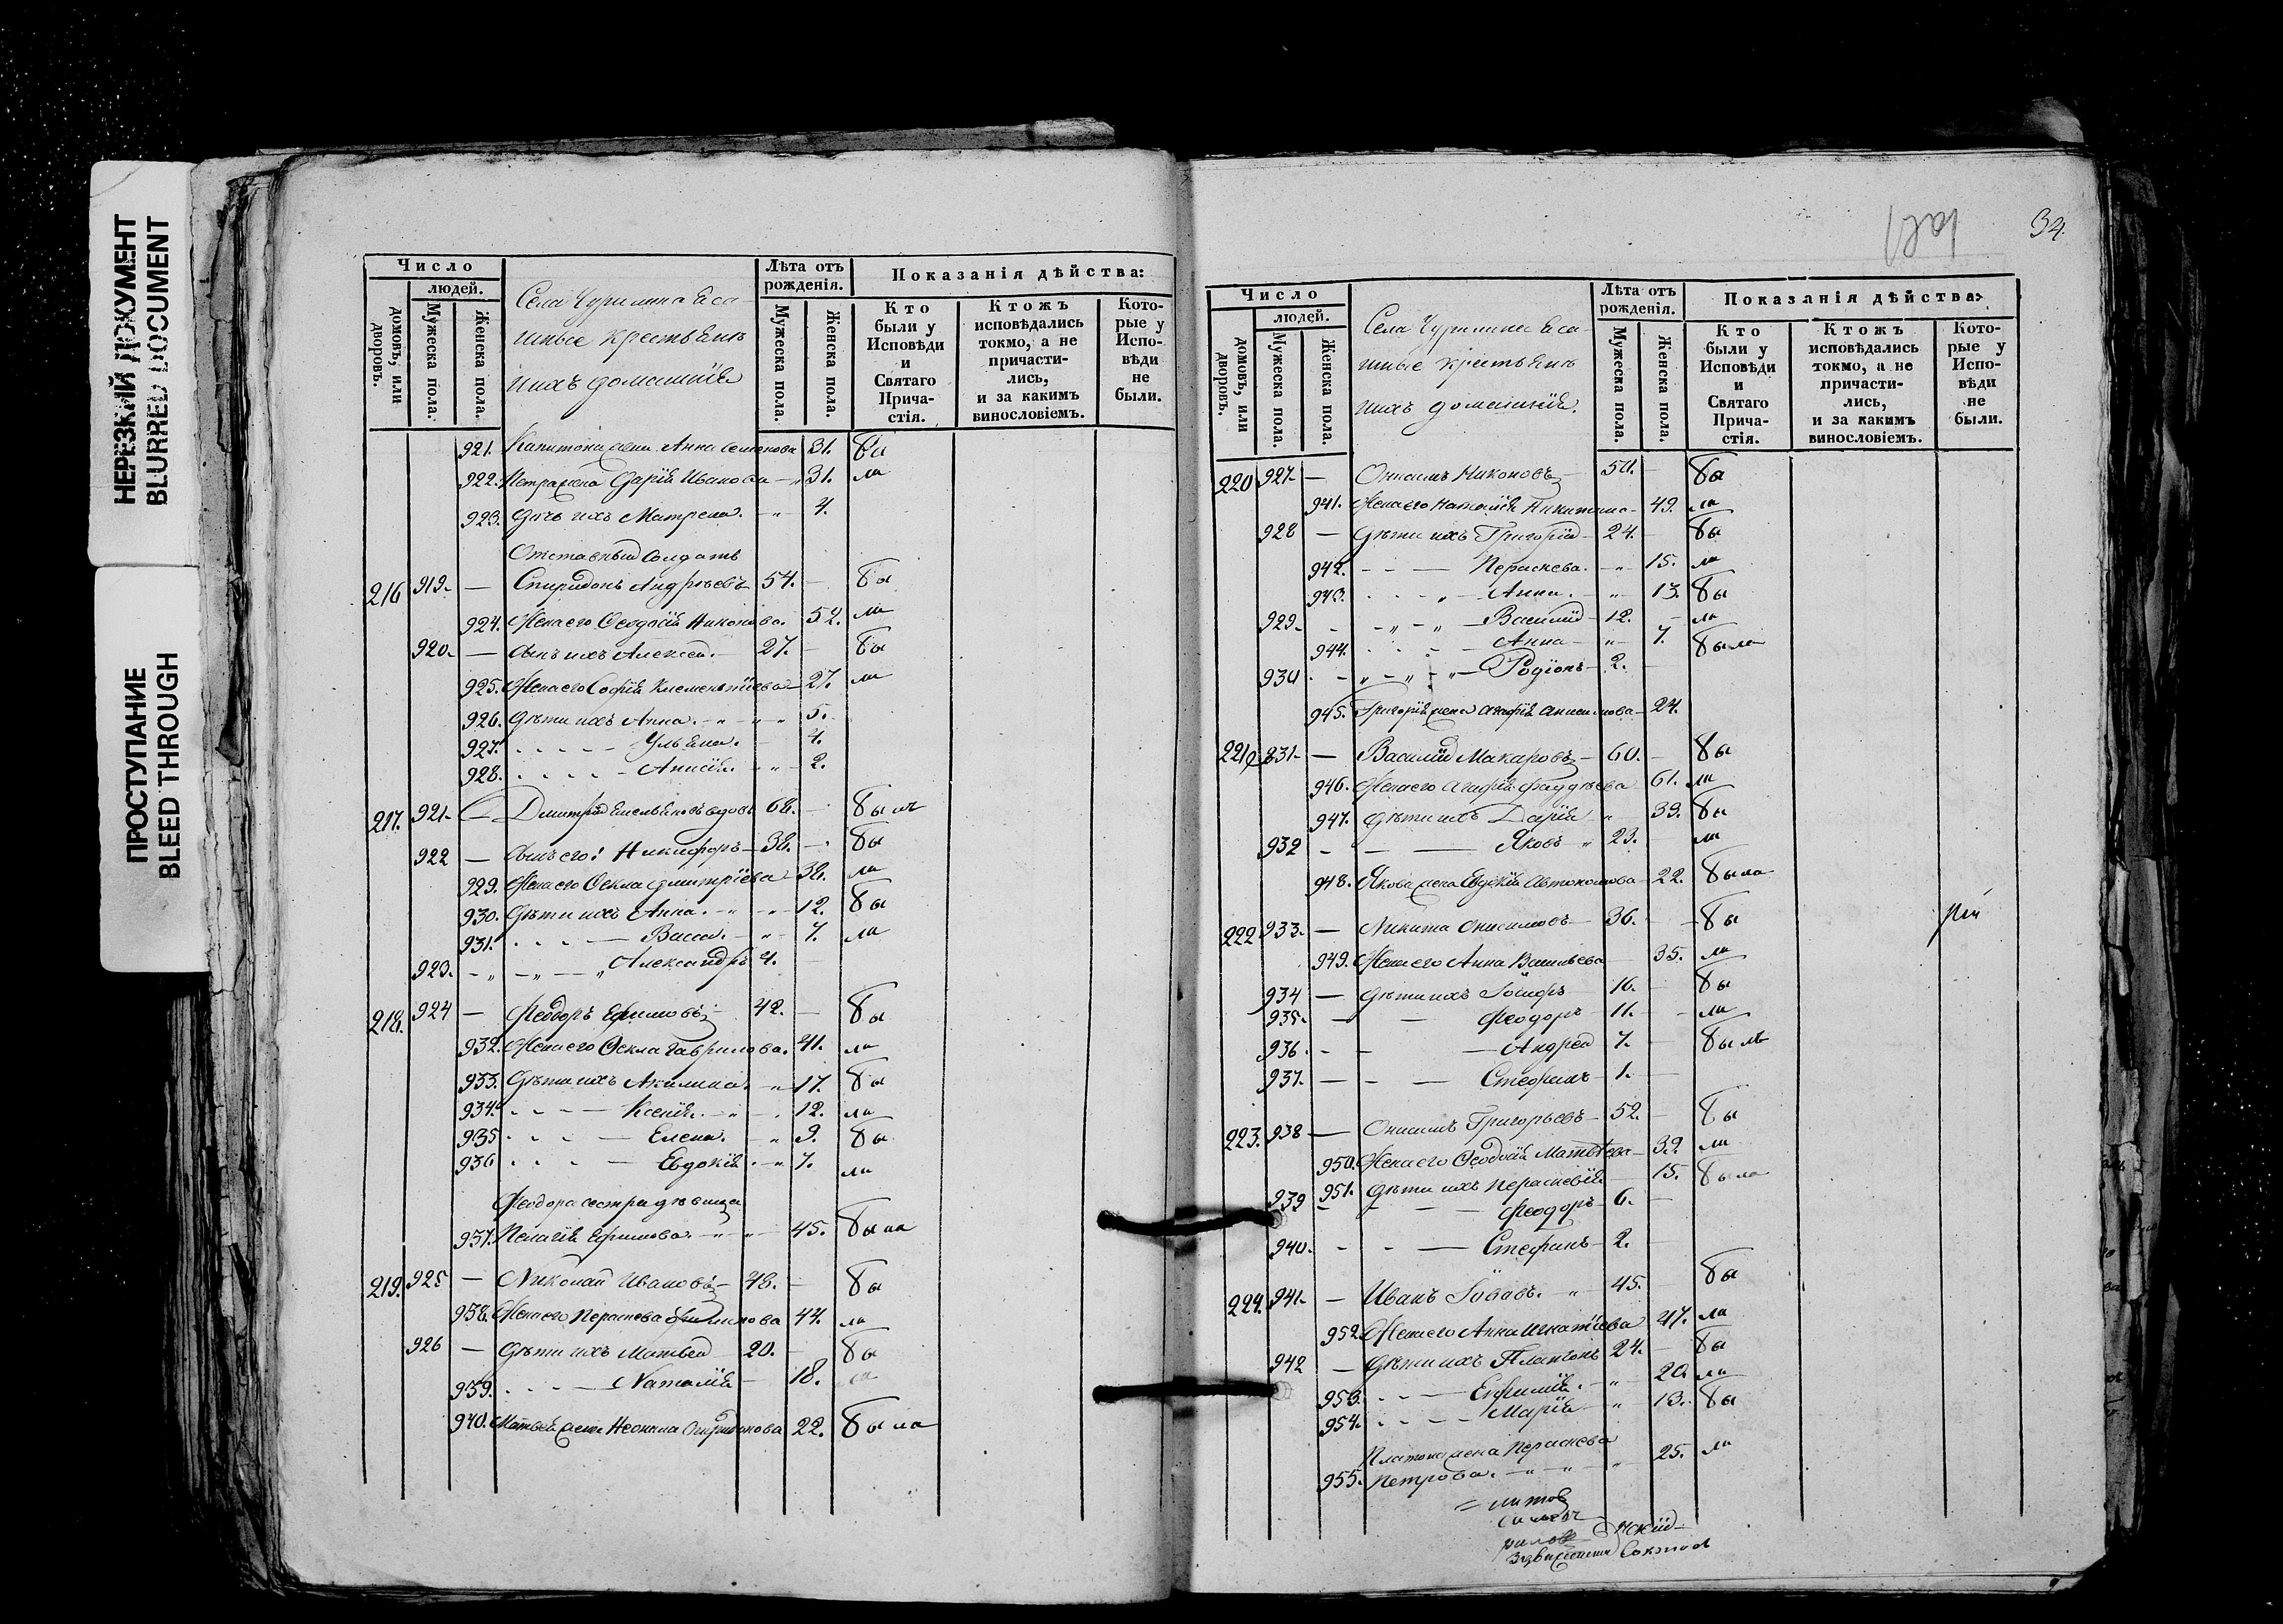 НЕРЕЗКИЙ ДОКУМЕНТ
BLURRED DOCUMENT
ПРОСТУПАНИЕ
BLEED THROUGH
Число
людей.
домовъ, или дворовъ.
Мужеска пола.
Женска пола.
Села Чурилина
крестьяне
ихъ домашнія
Лѣта отъ рожденія.
Мужеска пола.
Женска пола.
Показанія дѣйства:
Кто были у Исповѣди и Святаго Прича-стія.
Ктожъ исповѣдались токмо, а не причасти-лись, и за какимъ винословіемъ.
Кото-рые у Испо-вѣди не были.
921. Капитона жена Анна Семенова 31. бы
922. Петра жена Дарія Иванова 31. ли
923. Дочь ихъ Матрена. 4.
Отставный Солдатъ
216 919. — Спиридонъ Андреевъ 54. — бы
924. Жена его Ѳеодосія Никонова. 52. ли
920. — Сынъ ихъ Алексей. — 27. — бы
925. Жена его Софія Клементіева 27. ли
926. Дѣти ихъ Анна. 5.
927. Ульяна. 4.
928. Анисія. 2.
217. 921. — Димитрій Емельяновъ вдовъ 68. — былъ
922 — Сынъ его: Никифоръ — 38. — бы
929. Жена его Ѳекла Димитріева 38. ли
930. Дѣти ихъ Анна. 12. бы
931. Васса. 7. ли
923. Александръ 4.
218. 924 — Ѳеодоръ Ефимовъ 42. — бы
932. Жена его Ѳекла Гаврилова. 41. ли
933. Дѣти ихъ Акилина. 17. бы
934. Ксенія. 12. ли
935 Елена. 9. бы
936 Евдокія. 7. ли
Ѳеодора сестра дѣвица
937. Пелагія Ефимова. 45. была
219. 925 — Николай Ивановъ 48. — бы
938. Жена его Параскева 44. ли
926 — Дѣти ихъ Матвей 20. — бы
939. Наталія 18. ли
940. Матвея жена Неонила Спиридонова 22. была
34.
Число
людей.
домовъ, или дворовъ.
Мужеска пола.
Женска пола.
Села Чурилина
крестьяне
ихъ домашнія.
Лѣта отъ рожденія.
Мужеска пола.
Женска пола.
Показанія дѣйства:
Кто были у Исповѣди и Святаго Прича-стія.
Ктожъ исповѣдались токмо, а не причасти-лись, и за какимъ винословіемъ.
Кото-рые у Испо-вѣди не были.
220 927. — Онисимъ Никоновъ 50. — бы
941. Жена его Наталія Никитина 49. ли
928 — Дѣти ихъ Григорій 24. бы
942. Пераскева. 15. ли
943. Анна. 13. бы
929. Василій 12. — ли
944. Анна 7. была
930 Родіонъ 2. —
945. Григорія жена Агафія 24.
221 931. — Василій Макаровъ 60. — бы
946. Жена его Агафія Фаддѣева 61. ли
947. Дѣти ихъ Дарія 33. бы
932 Яковъ 23. ли
948. Якова жена Евдокія Автономова 22. была
222 933. — Никита Онисимовъ 36. — бы
949. Жена его Анна Васильева 35. ли
934 — Дѣти ихъ Іосифъ 16. бы
935. Ѳеодоръ 11. ли
936. Андрей 7. былъ
937. Стефанъ 1. —
223. 938 — Онисимъ Григорьевъ 52. — бы
950. Жена его Ѳеодосія Матвѣева 39. ли
951. Дѣти ихъ Параскевія 15. была
939 Ѳеодоръ 6. —
940. Стефанъ 2. —
224. 941. — Иванъ Іовлевъ. 45. бы
952. Жена его Анна Игнатіева 47. ли
942 — Дѣти ихъ Платонъ 24. — бы
953. Ефимія. 20. ли
954. Марія 13. бы
Платона жена Параскева
955. Петрова. 25. ли